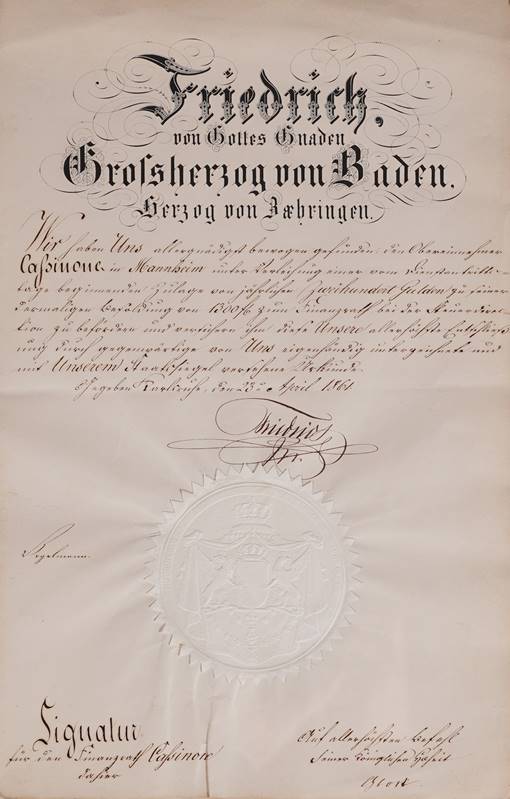 Friedrich,
von Gottes Gnaden
Grossherzog von Baden.
Herzog von Zæhringen.
Wir haben Uns allergnädigst bewogen gefunden, den Obereinnehmer
Caßinone in Mannheim unter Verleihung einer vom Dienstantritts-
tage beginnenden Zulage von jährlichen Zweihundert Gulden zu seiner
dermaligen Besoldung von 1300 fl. zum Finanzrath bei der Steuerdirec-
tion zu befördern und ertheilen ihm diese Unsere allerhöchste Entschließ-
ung durch gegenwärtige von Uns eigenhändig unterzeichnete und
mit Unserem Staatssiegel versehene Urkunde.
Gegeben Karlsruhe, den April 1861
Friedrich
Vogelmann.
Signatur
für den Finanzrath Caßinone
dahier
Auf allerhöchsten Befehl
Seiner Königlichen Hoheit